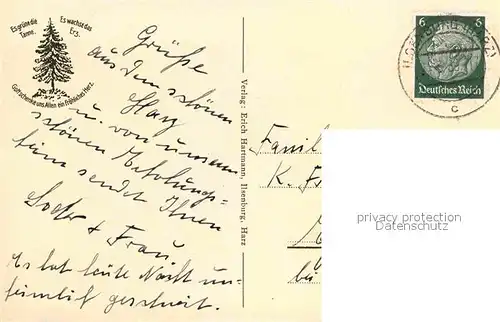 Es grüne die Tanne,
Es wachse das Erz,
Gott schenke uns Allen ein fröhliches Herz.
Grüße
aus dem schönen
Harz
u. von unserm
schönen Erholungs-
heim sendet Ihnen
& Frau
Es hat heute Nacht un-
heimlich geschneit.
Verlag: Erich Hartmann, Ilsenburg, Harz
6 6
Deutsches Reich
c
Famil
K. F
bei
privacy protection
DATENSCHUTZ